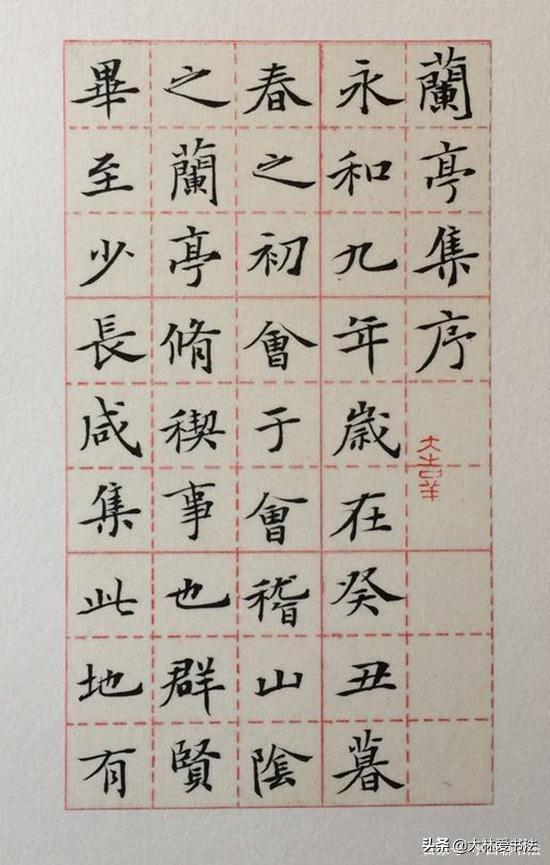 蘭亭集序
永和九年歲在癸丑暮
春之初會于會稽山陰
之蘭亭脩稧事也群賢
畢至少長咸集此地有
大吉羊
头条 @大林爱书法